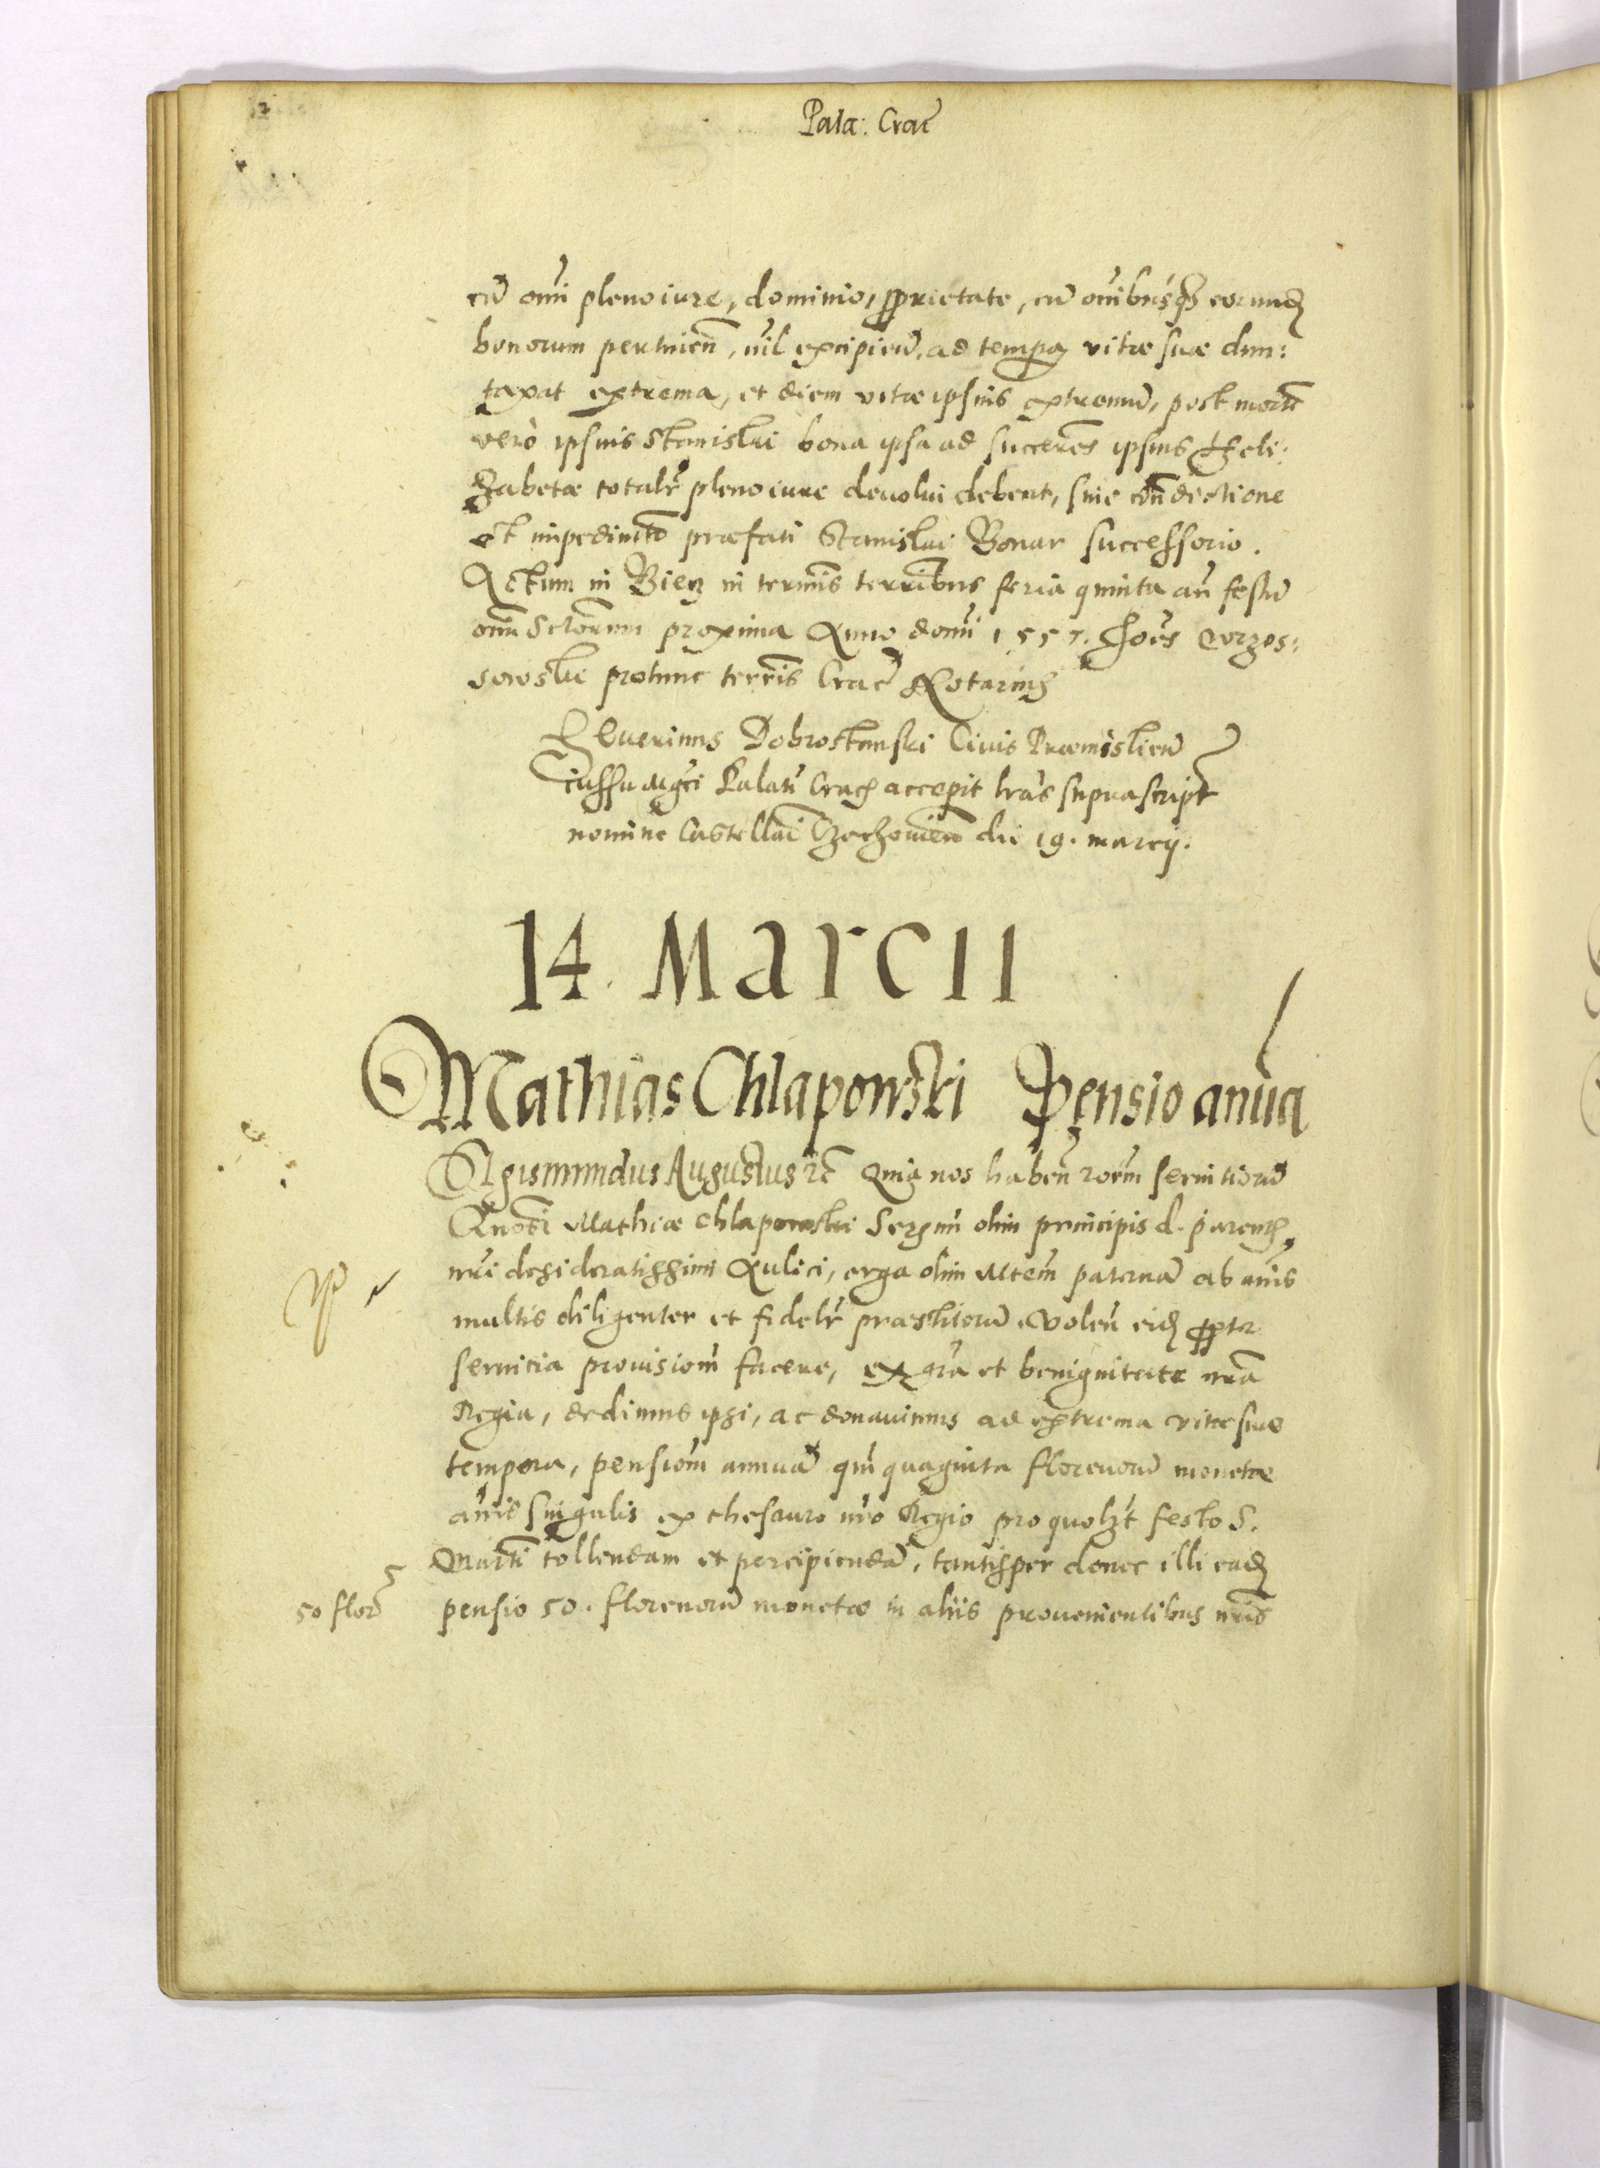 Pala: Crac
cũ omi pleno iure, dominio, pprietate, cũ omibusq3 eorund
bonorum pertinen, nil excipien, ad tempora vitæ suæ dun:
taxat extrema, et diem vitæ ipsius extremũ, post morte
verò ipsius Stanislai bona ipsa ad succeres ipsius Heli:
zabetæ totalr pleno iure deuolui debent, sine contradictione
et impedimto præfati Stanislai Bonar successorio.
Actum in Biecz in terminis terribus feria quinta an festũ
om Sctorum proxima Anno domi 1557. Joes
protunc terris Crac Notarius
Seuerinus Dobrostanski Ciuis Præmislien
iussu Mgci Palati Crac accepit lras suprascript
nomine Castellani Czechouien die 19. marcij.
14. Marcii
Mathias Chlapowski Pensio annua
Sigismundus Augustus rc Quia nos haben roem seruitiorũ
Gnosi Mathiæ Chlapowski Sermi olim principis d. parentis
nri desideratissimi Aulici, erga olim Mtem paternã ab annis
multis diligenter et fidelr præstitorũ. Volen eid ppter
seruitia prouisiom facere, ex gra et benignitate nra
Regia, dedimus ipsi, ac donauimus ad extrema vitæ suæ
tempora, pensiom annuã quinquaginta florenorũ monetæ
annis singulis ex thesauro nro Regio pro quolzt festo S.
Marti tollendam et percipiendã, tantisper donec illi ead
50 flor pensio 50. florenorũ monetæ in aliis prouenientibus nris